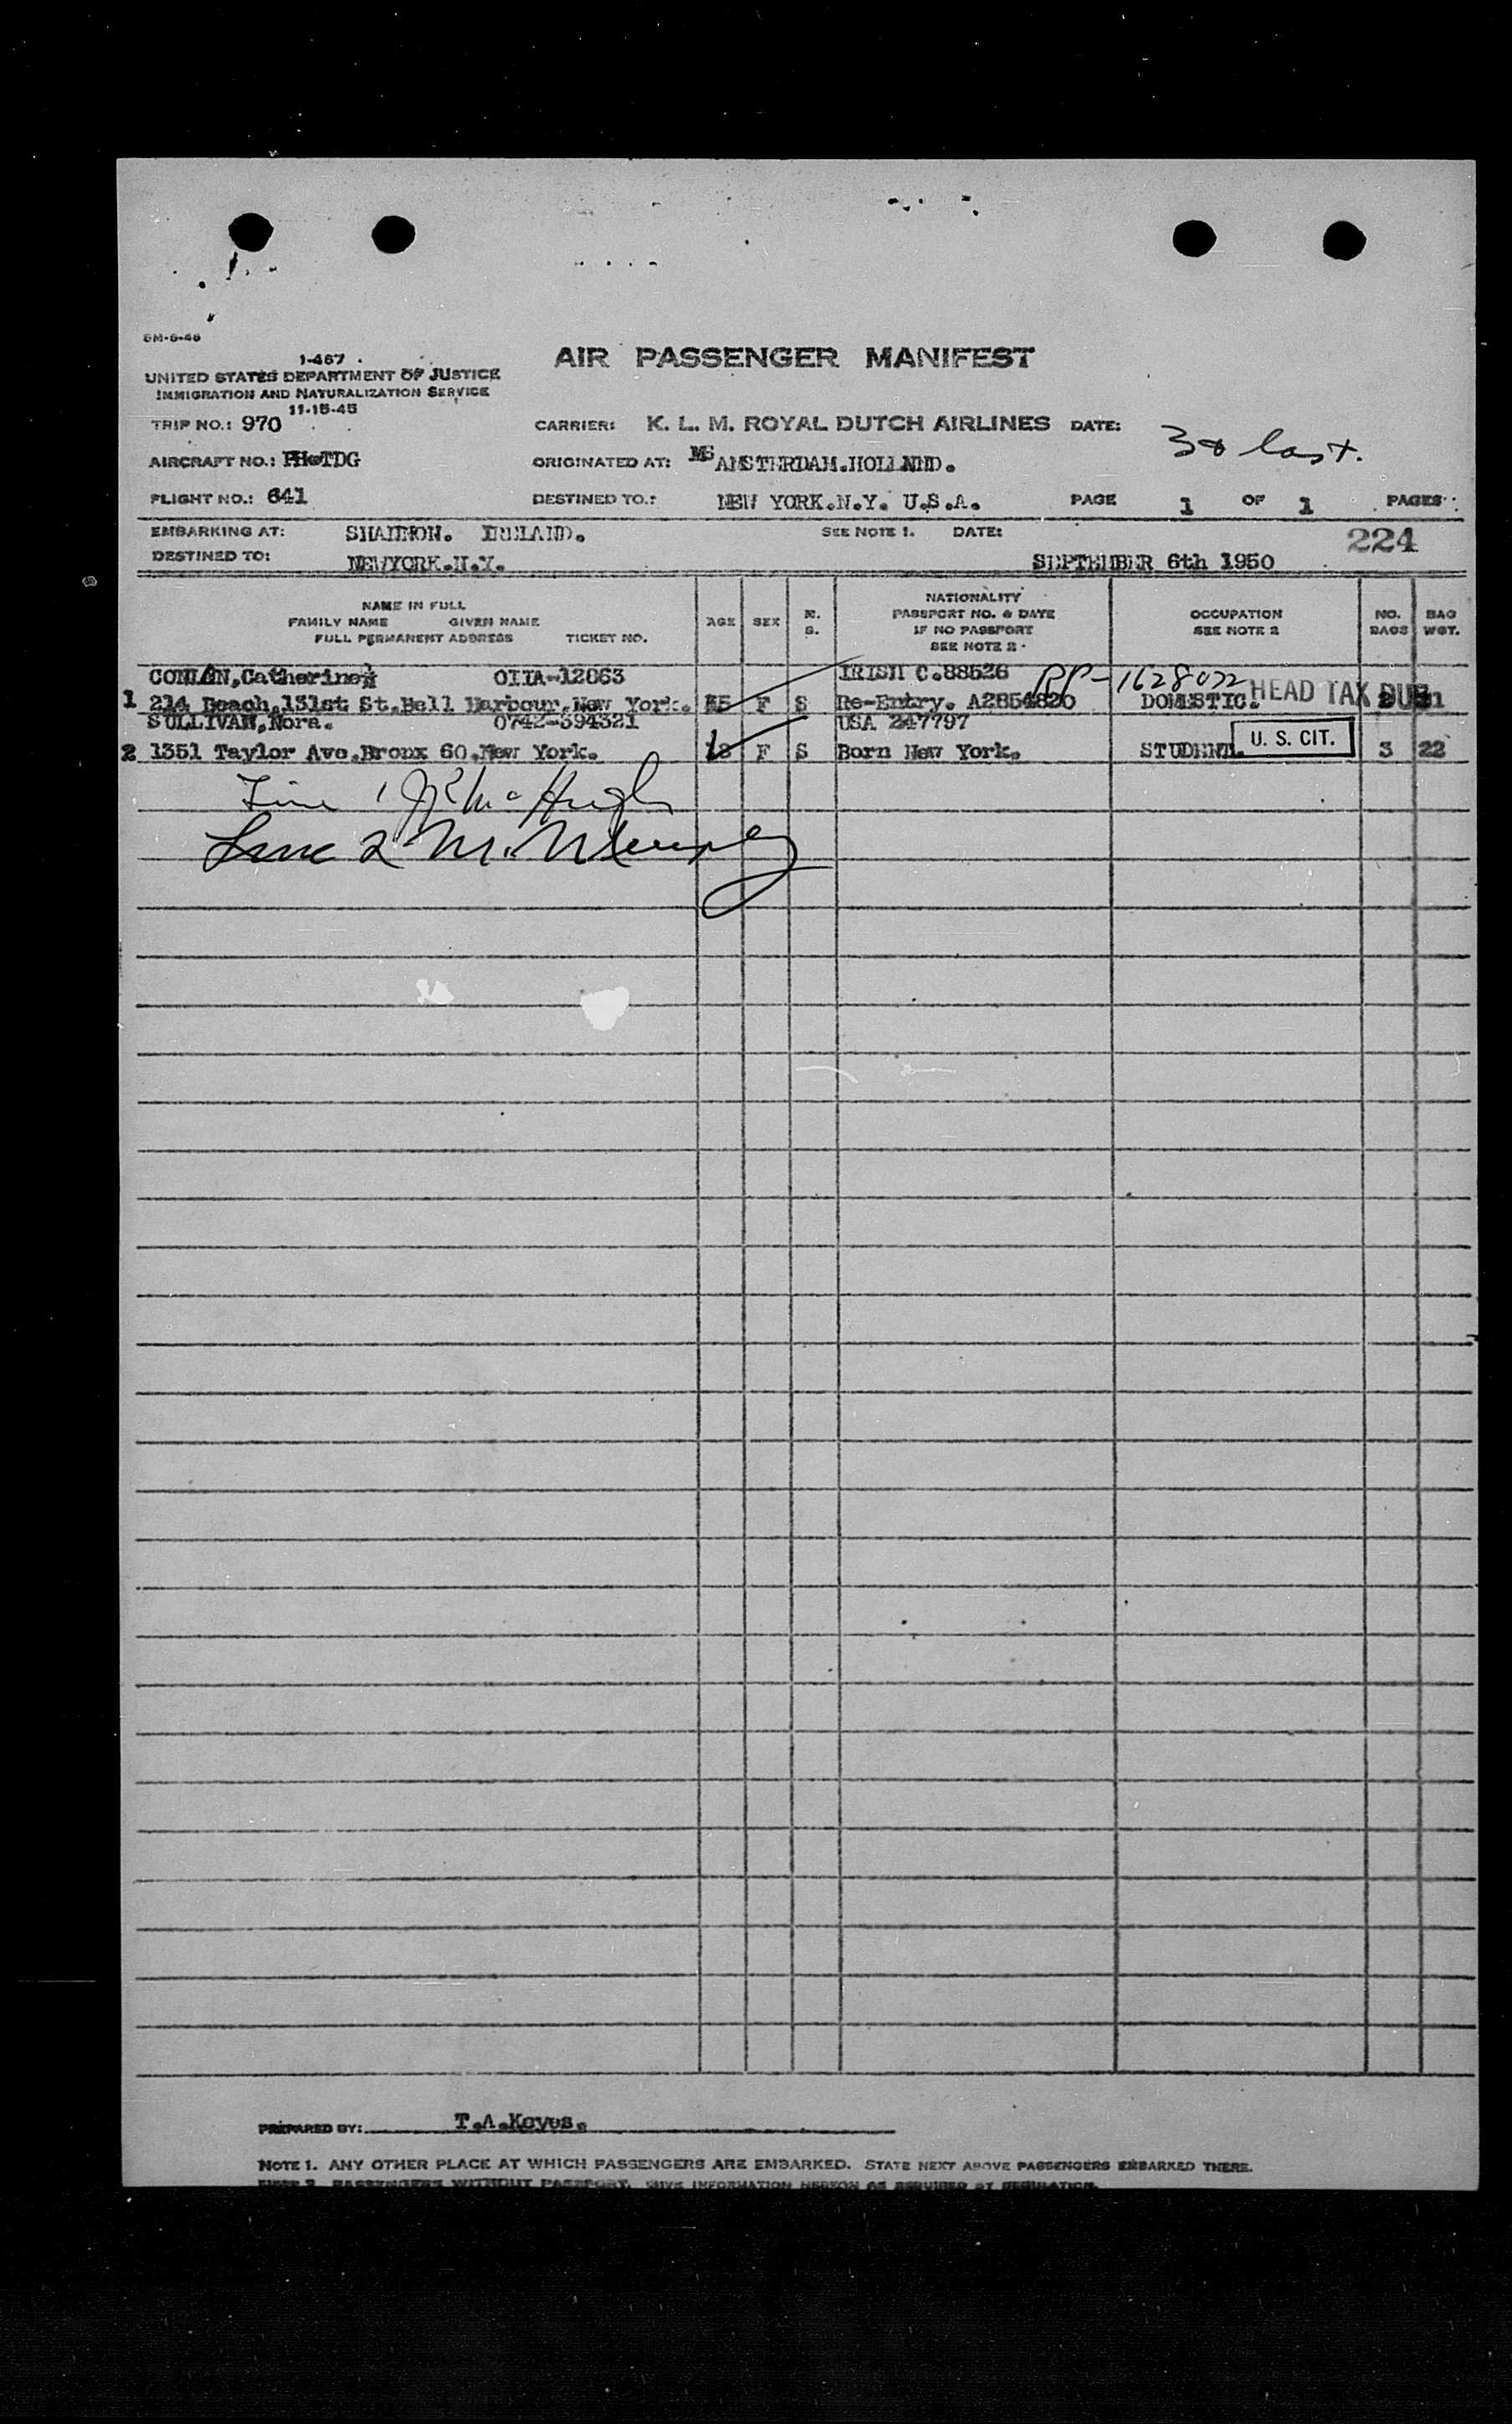 6M-6-46
AIR PASSENGER MANIFEST
I-467
UNITED STATES DEPARTMENT OF JUSTICE
IMMIGRATION AND NATURALIZATION SERVICE
11-15-45
TRIP NO.: 970 CARRIER: K. L. M. ROYAL DUTCH AIRLINES DATE: last.
AIRCRAFT NO.: PH-TDG ORIGINATED AT: AMSTERDAM.HOLLAND.
FLIGHT NO.: 641 DESTINED TO.: NEW YORK.N.Y. U.S.A. PAGE 1 OF 1 PAGES
EMBARKING AT: SHANNON. IRELAND. SEE NOTE 1. DATE: 224
DESTINED TO: NEWYORK.N.Y. SEPTEMBER 6th 1950
NAME IN FULL
FAMILY NAME GIVEN NAME
FULL PERMANENT ADDRESS TICKET NO.
AGE SEX M. S.
NATIONALITY
PASSPORT NO. & DATE
IF NO PASSPORT
SEE NOTE 2
OCCUPATION
SEE NOTE 2
NO. BAGS
BAG WGT.
CONLAN,Catherine OIIA-12063 IRISH C.88526 PP-1628022
1 214 Beach,131st St.Bell Harbour,New York. F S Re-Entry. A2854820 DOMESTIC. HEAD TAX DUE
SULLIVAN,Nora. 0742-394321 USA 247797
2 1351 Taylor Ave.Bronx 60.New York. 18 F S Born New York. STUDENT. U. S. CIT. 3 22
Line 1 McHugh
Line 2 M.
PREPARED BY: T.A.Keyes.
NOTE 1. ANY OTHER PLACE AT WHICH PASSENGERS ARE EMBARKED. STATE NEXT ABOVE PASSENGERS EMBARKED THERE.
NOTE 2. PASSENGERS WITHOUT PASSPORT, GIVE INFORMATION HEREON AS REQUIRED BY REGULATION.